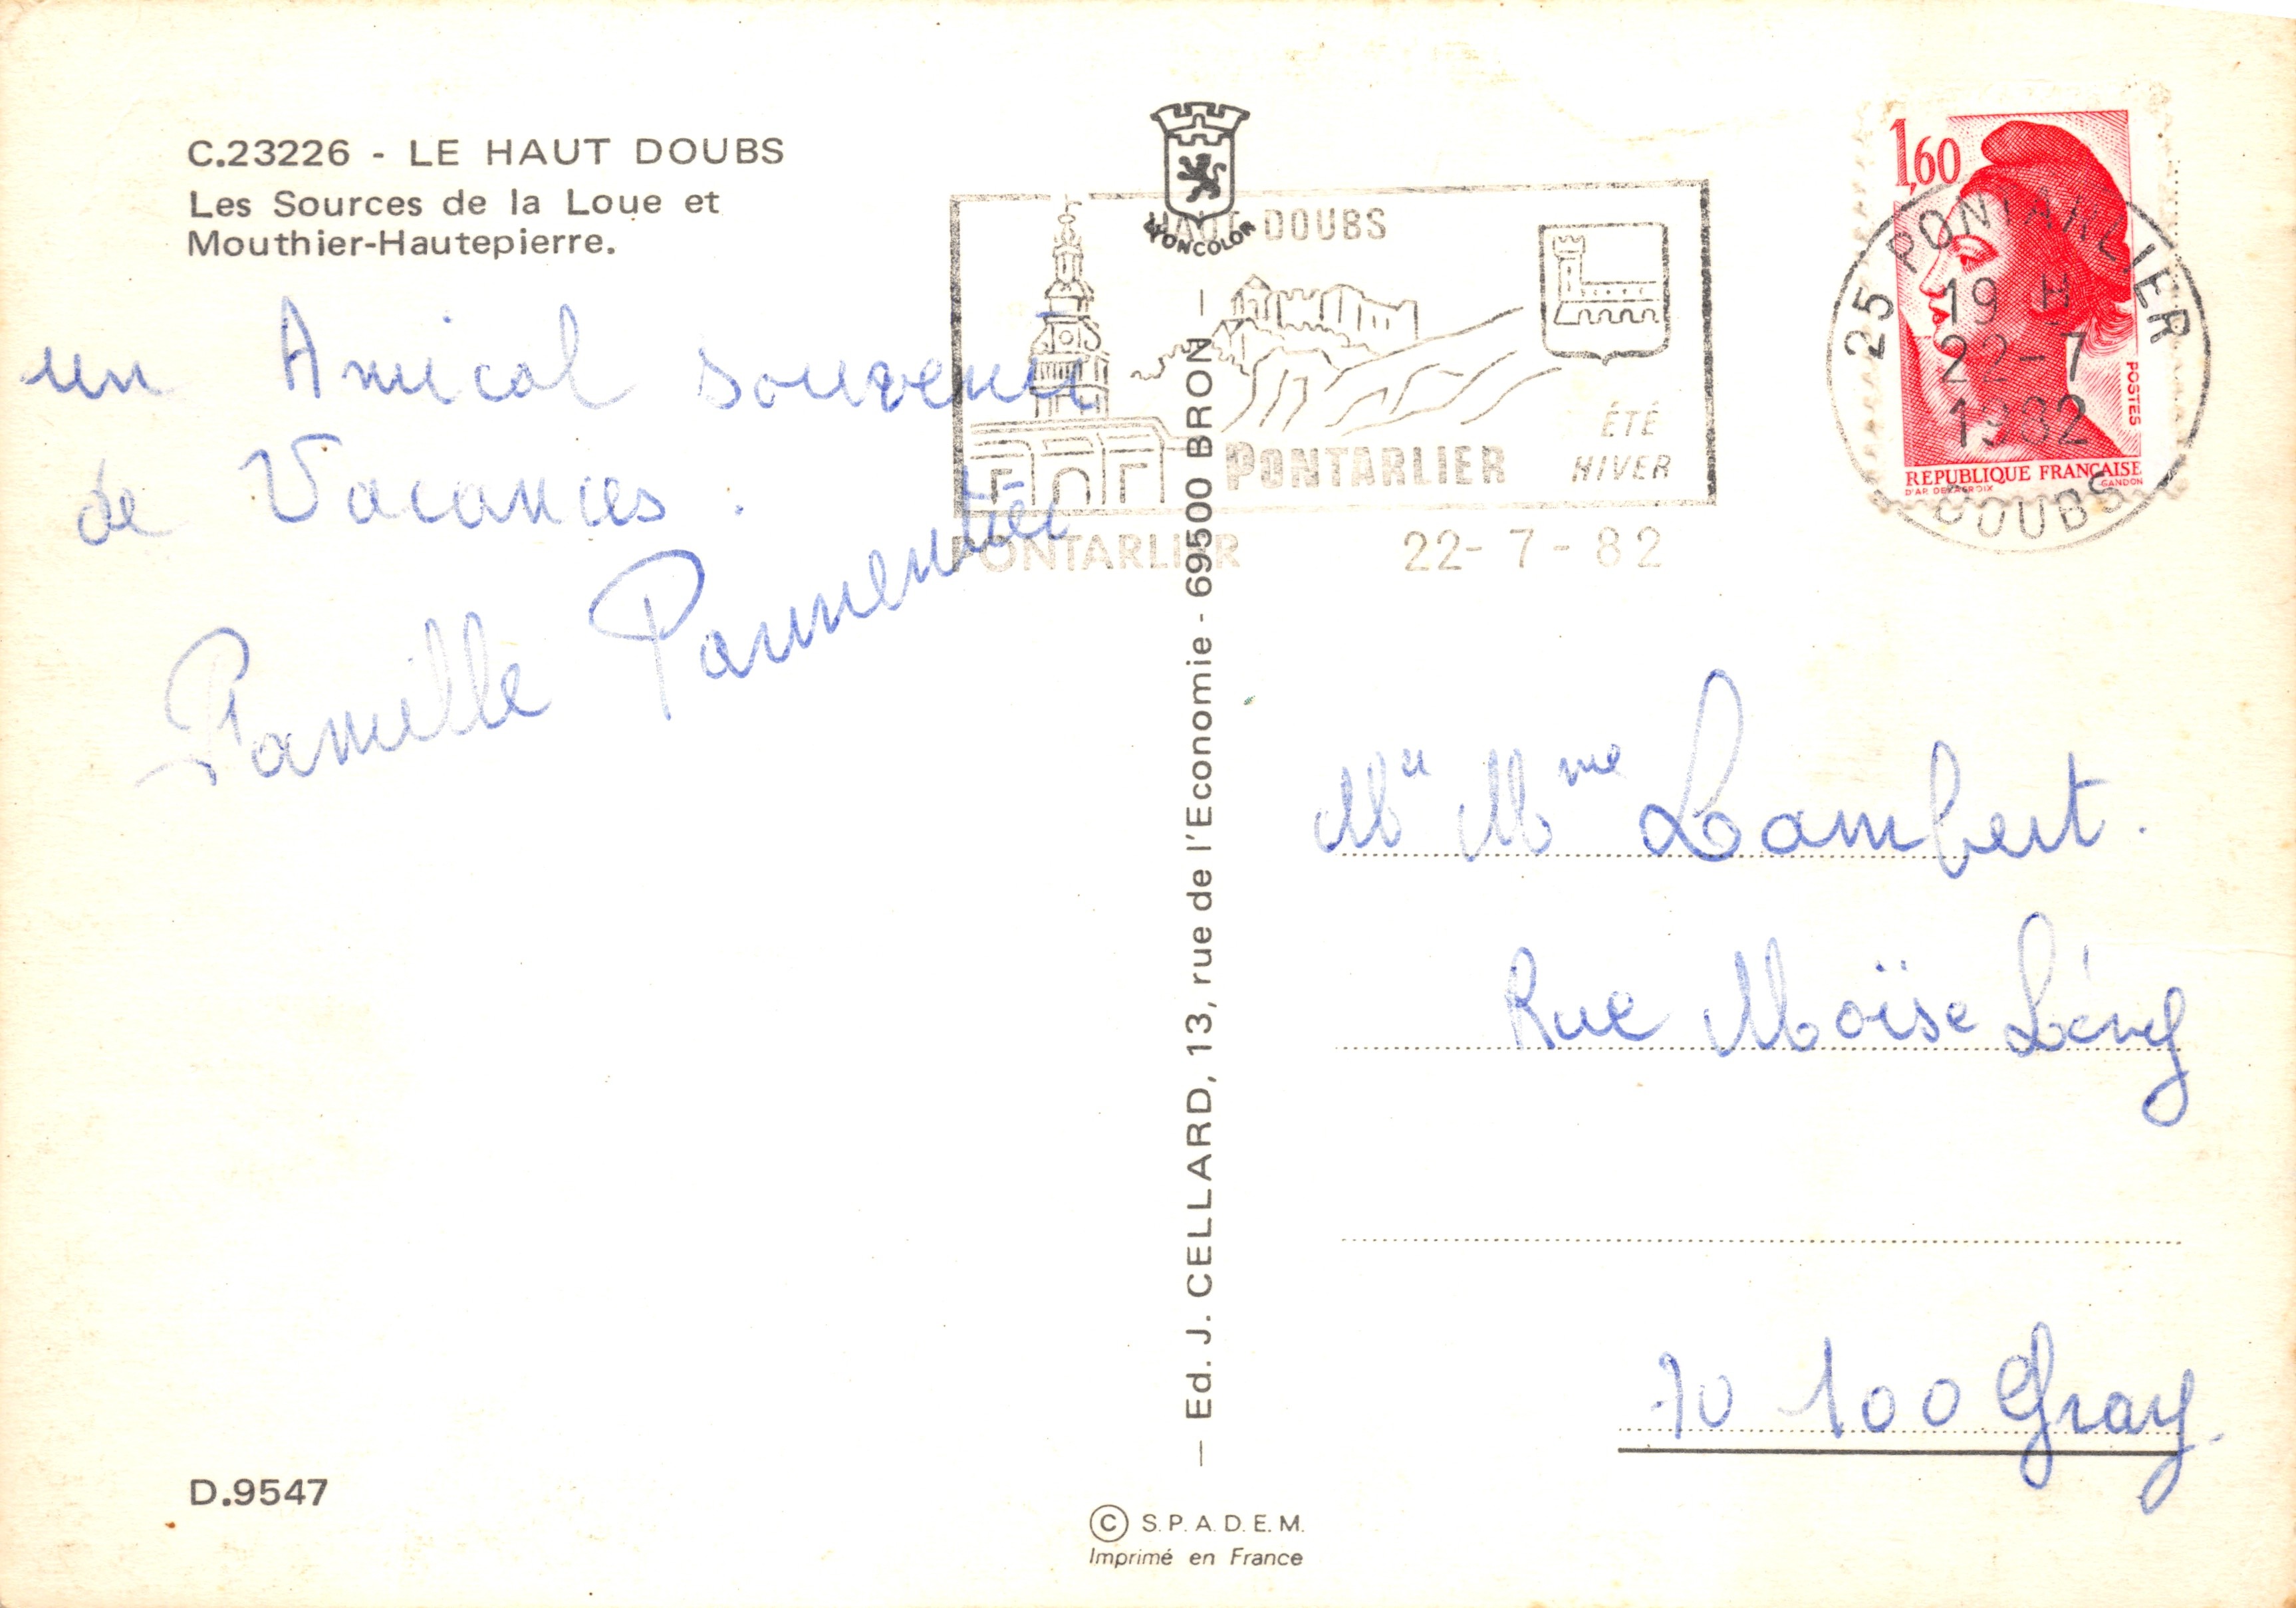 C.23226 - LE HAUT DOUBS
Les Sources de la Loue et
Mouthier-Hautepierre.
un Amical souvenir
de Vacances.
Famille Parmentier
D.9547
LYONCOLOR
— Ed. J. CELLARD, 13, rue de l'Economie - 69500 BRON —
© S.P.A.D.E.M.
Imprimé en France
HAUT-DOUBS
PONTARLIER
ÉTÉ
HIVER
PONTARLIER 22-7-82
1,60
POSTES
REPUBLIQUE FRANÇAISE
D'AP. DELACROIX GANDON
25 PONTARLIER
19 H
22-7
1982
DOUBS
Mr Mme Lambert.
Rue Moïse Lévy
70 100 Gray.